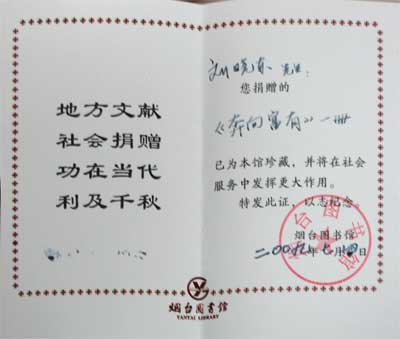 地方文献
社会捐赠
功在当代
利及千秋
刘晓东 先生：
您捐赠的
《奔向富有》一册
已为本馆珍藏，并将在社会
服务中发挥更大作用。
特发此证，以志纪念。
烟台图书馆
烟台图书馆
烟台图书馆
YANTAI LIBRARY